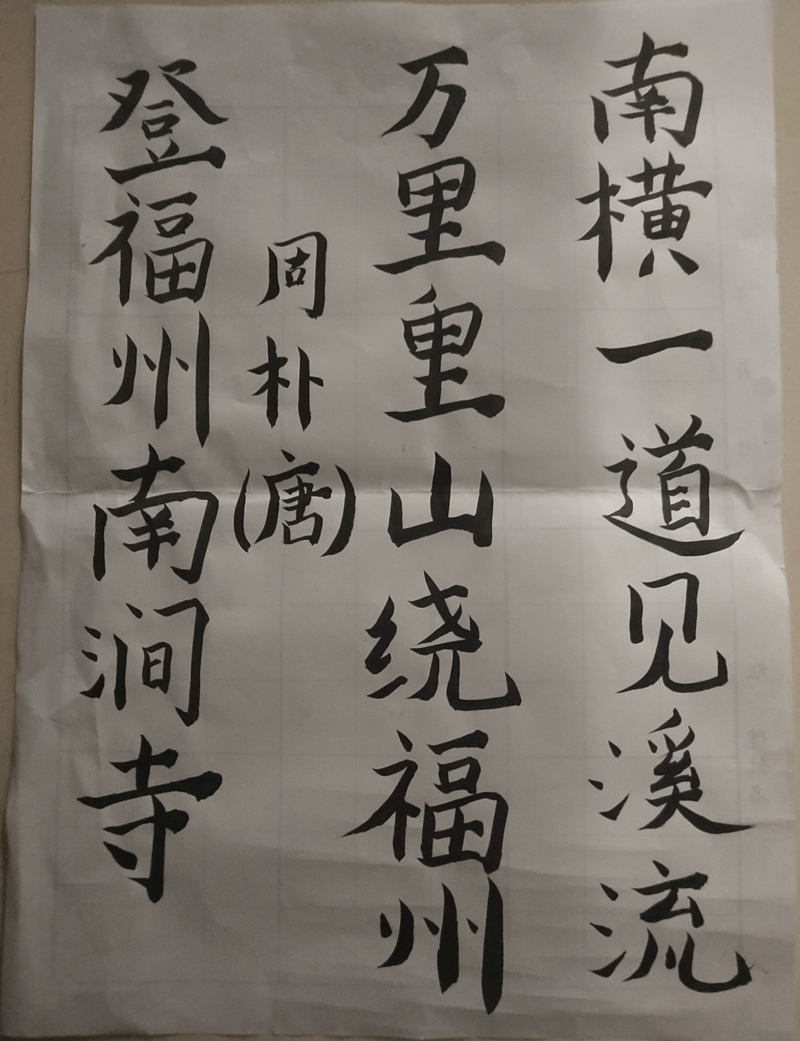 登福州南涧寺
周朴(唐)
万里重山绕福州
南横一道见溪流